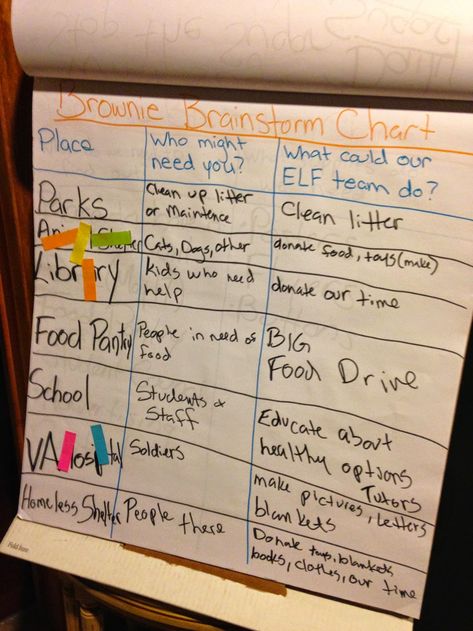 Brownie Brainstorm Chart
Place
Who might
need you?
What could our
ELF team do?
Parks
Clean up litter
or Maintence
Clean litter
Shelter
Cats, Dogs, other
donate food, toys (make)
Library
kids who need
help
donate our time
Food Pantry
People in need of
food
BIG
Food Drive
School
Students &
Staff
Educate about
healthy options
Tutors
VA Hospital
Soldiers
make pictures, letters
blankets
Homeless Shelter
People there
Donate toys, blankets
books, clothes, our time